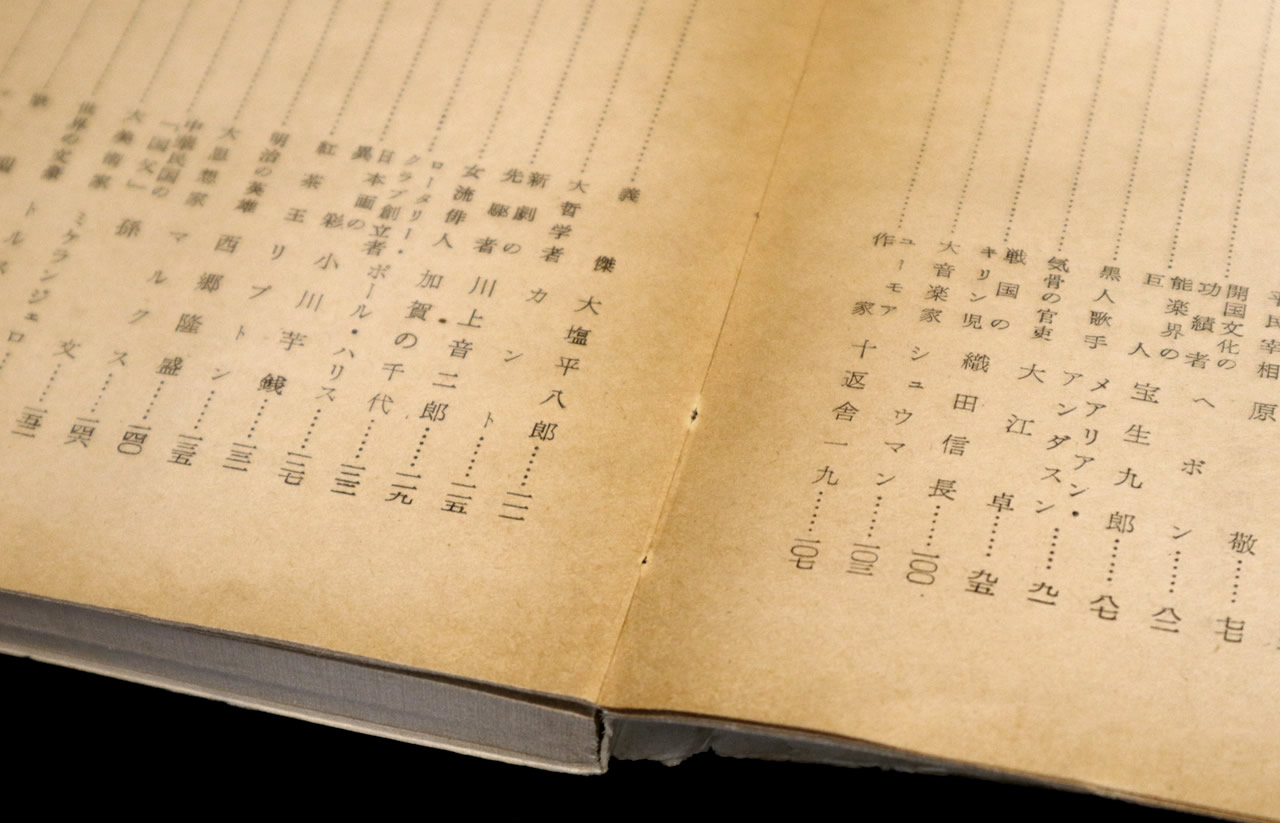 平民宰相 原敬……七七
開国文化の功績者 ヘボン……八二
能楽界の巨人 宝生九郎……八七
黒人歌手 メアリアン・アンダスン……九一
気骨の官吏 大江卓……九五
戦国のキリン児 織田信長……一〇〇
大音楽家 シュウマン……一〇三
ユーモア作家 十返舎一九……一〇七
義傑 大塩平八郎……一一一
大哲学者 カント……一一五
新劇の先駆者 川上音二郎……一一九
女流俳人 加賀の千代……一二三
ロータリー・クラブ創立者 ポール・ハリス……一二七
日本画の異彩 小川芋銭……一三一
紅茶王 リプトン……一三五
明治の英雄 西郷隆盛……一四〇
大思想家 マルクス……一四六
中華民国の「国父」 孫文……一五一
大美術家 ミケランジェロ…
世界の文豪 トルス